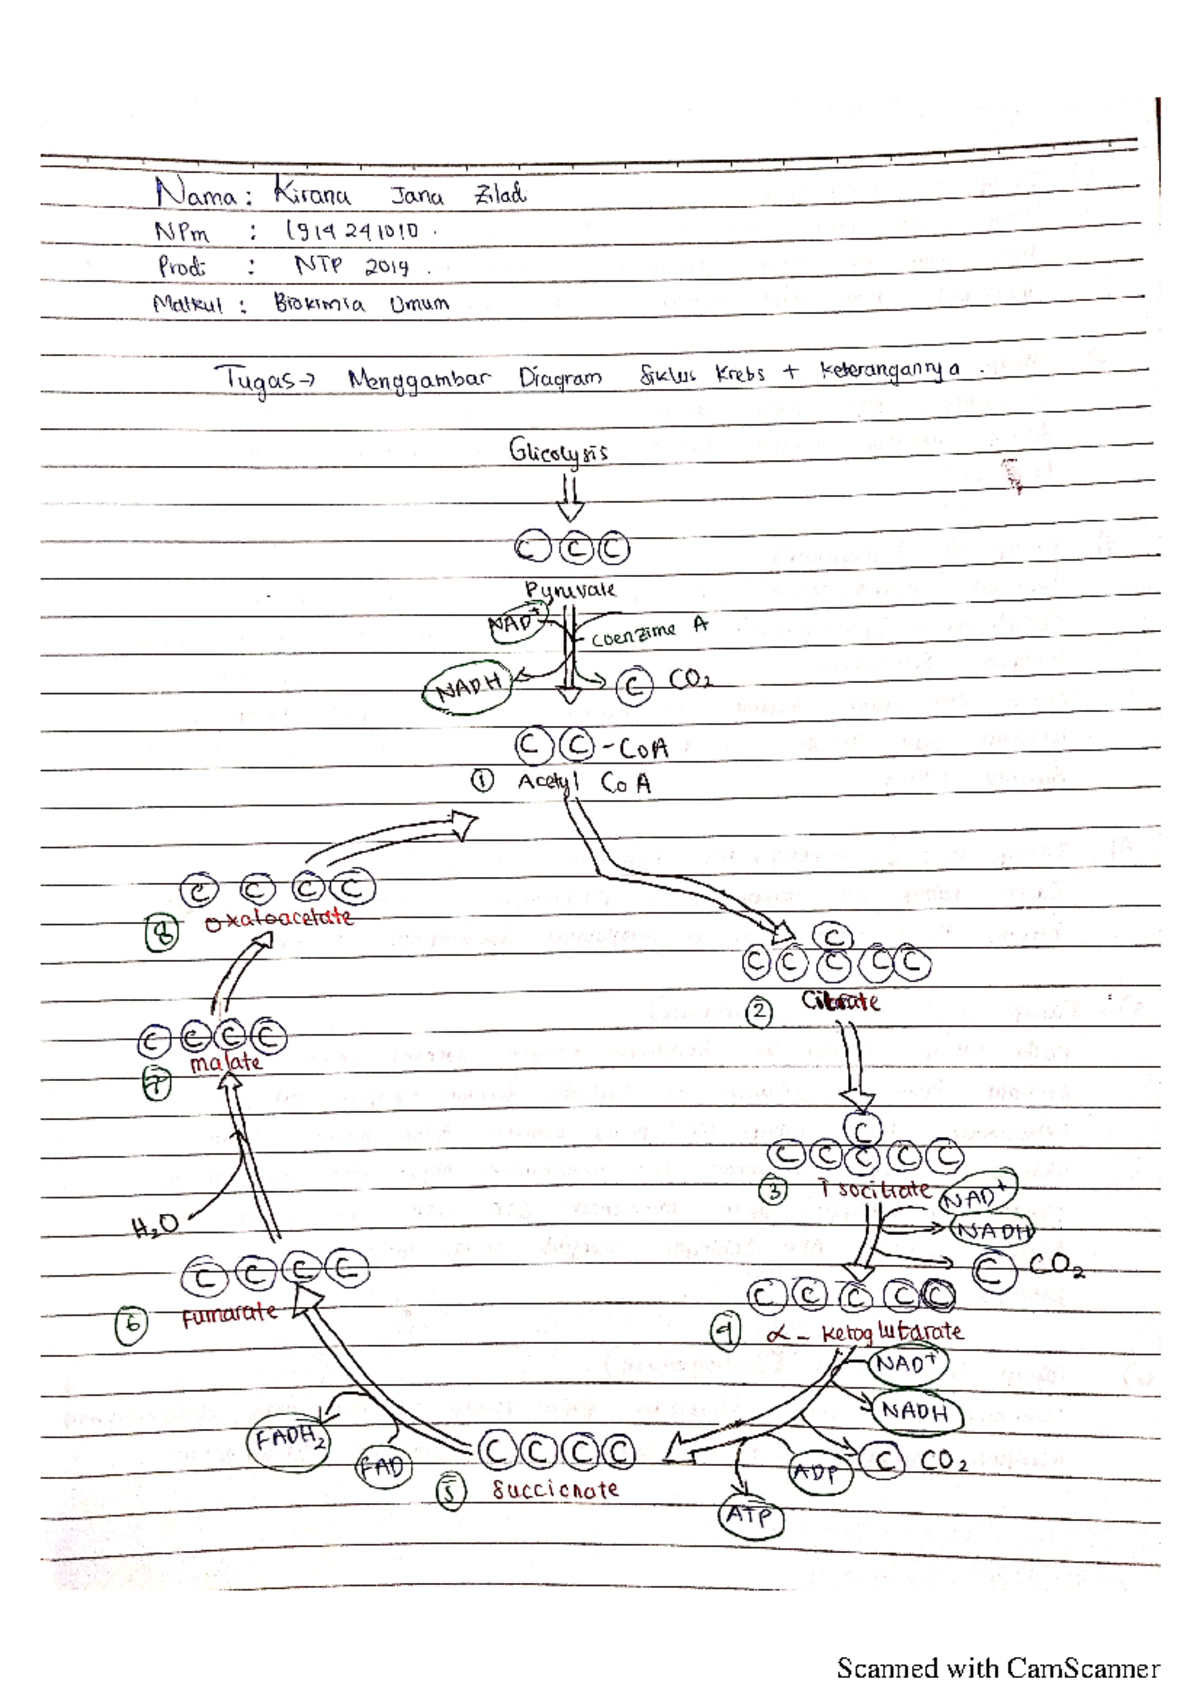 Nama : Kirana Jana Zilad
NPm : 1914241010 .
Prodi : NTP 2019 .
Matkul : Biokimia Umum
Tugas → Menggambar Diagram Siklus Krebs + keterangannya .
Glicolysis
C C C
Pyruvate
NAD+
Coenzime A
NADH
C CO2
C C - CoA
① Acetyl CoA
C C C C
⑧ oxaloacetate
C
C C C C C
② Citrate
C C C C
malate
⑦
C
C C C C C
③ Isocitrate NAD+
NADH
H2O
C CO2
C C C C
⑥ Fumarate
C C C C C
④ α - Ketoglutarate
NAD+
NADH
FADH2
FAD
C C C C
⑤ Succicnate
C CO2
ADP
ATP
Scanned with CamScanner